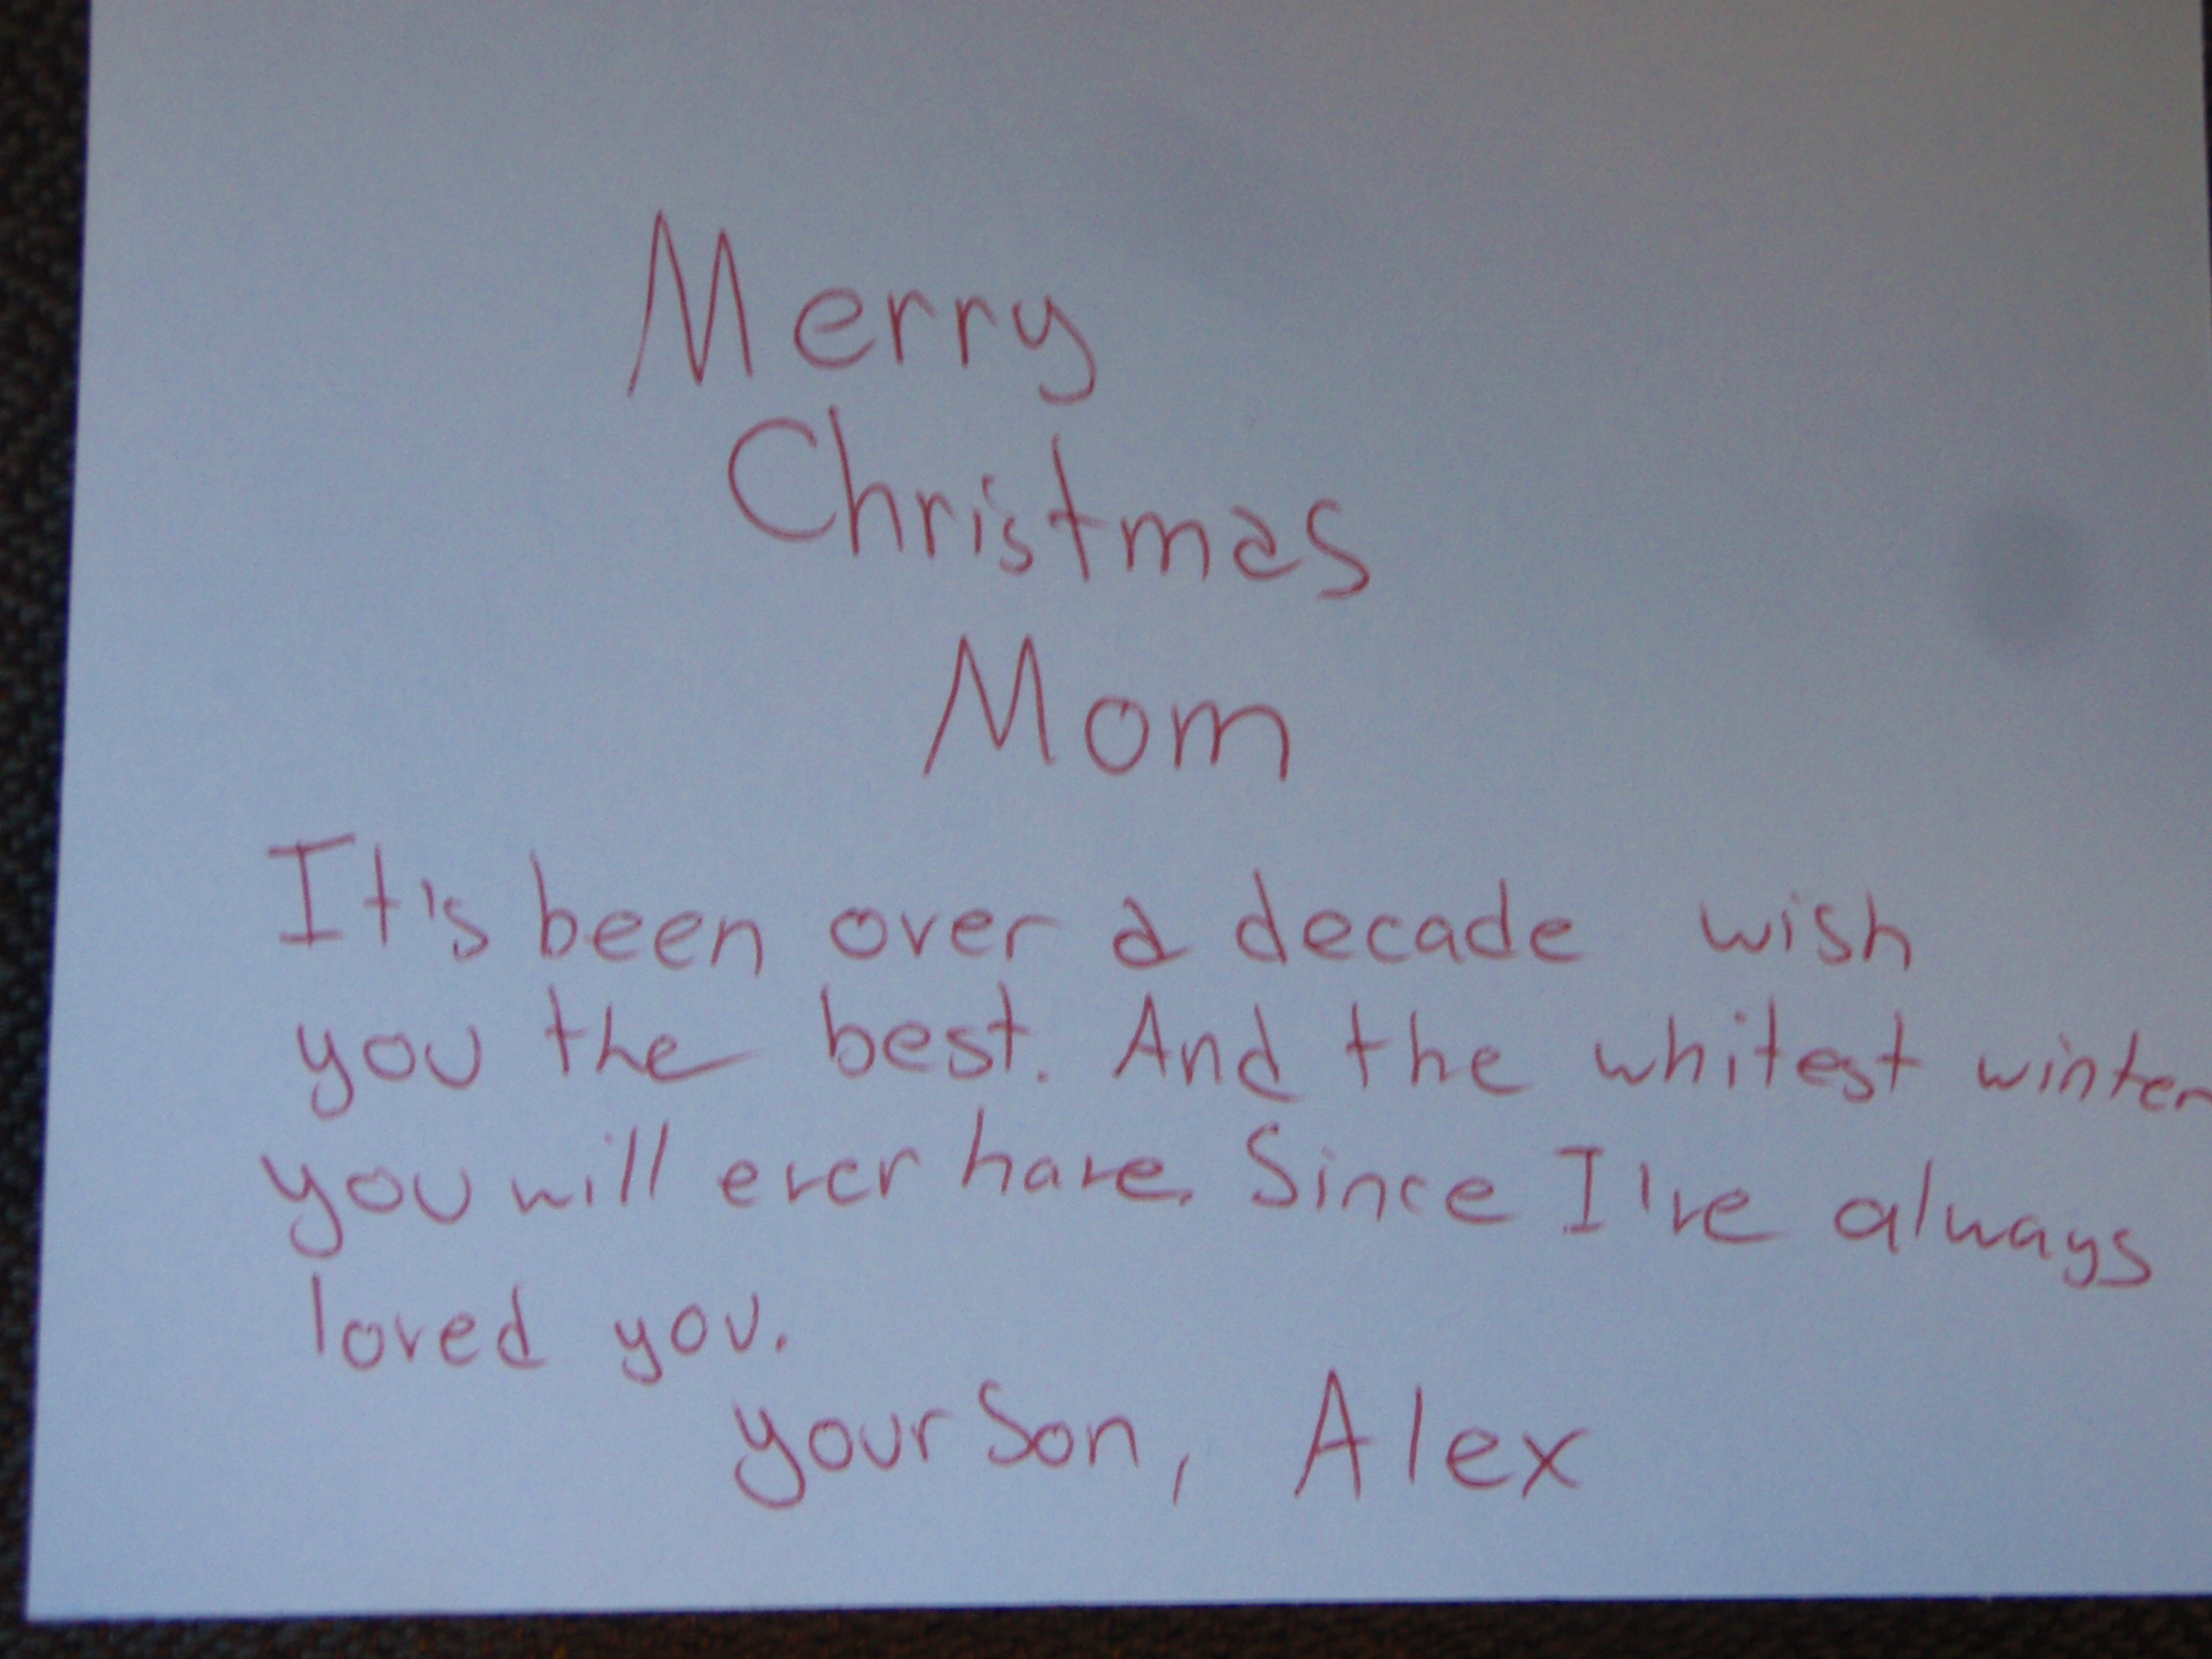 Merry
Christmas
Mom
It's been over a decade wish
you the best. And the whitest winter
you will ever have. Since I've always
loved you.
your Son, Alex